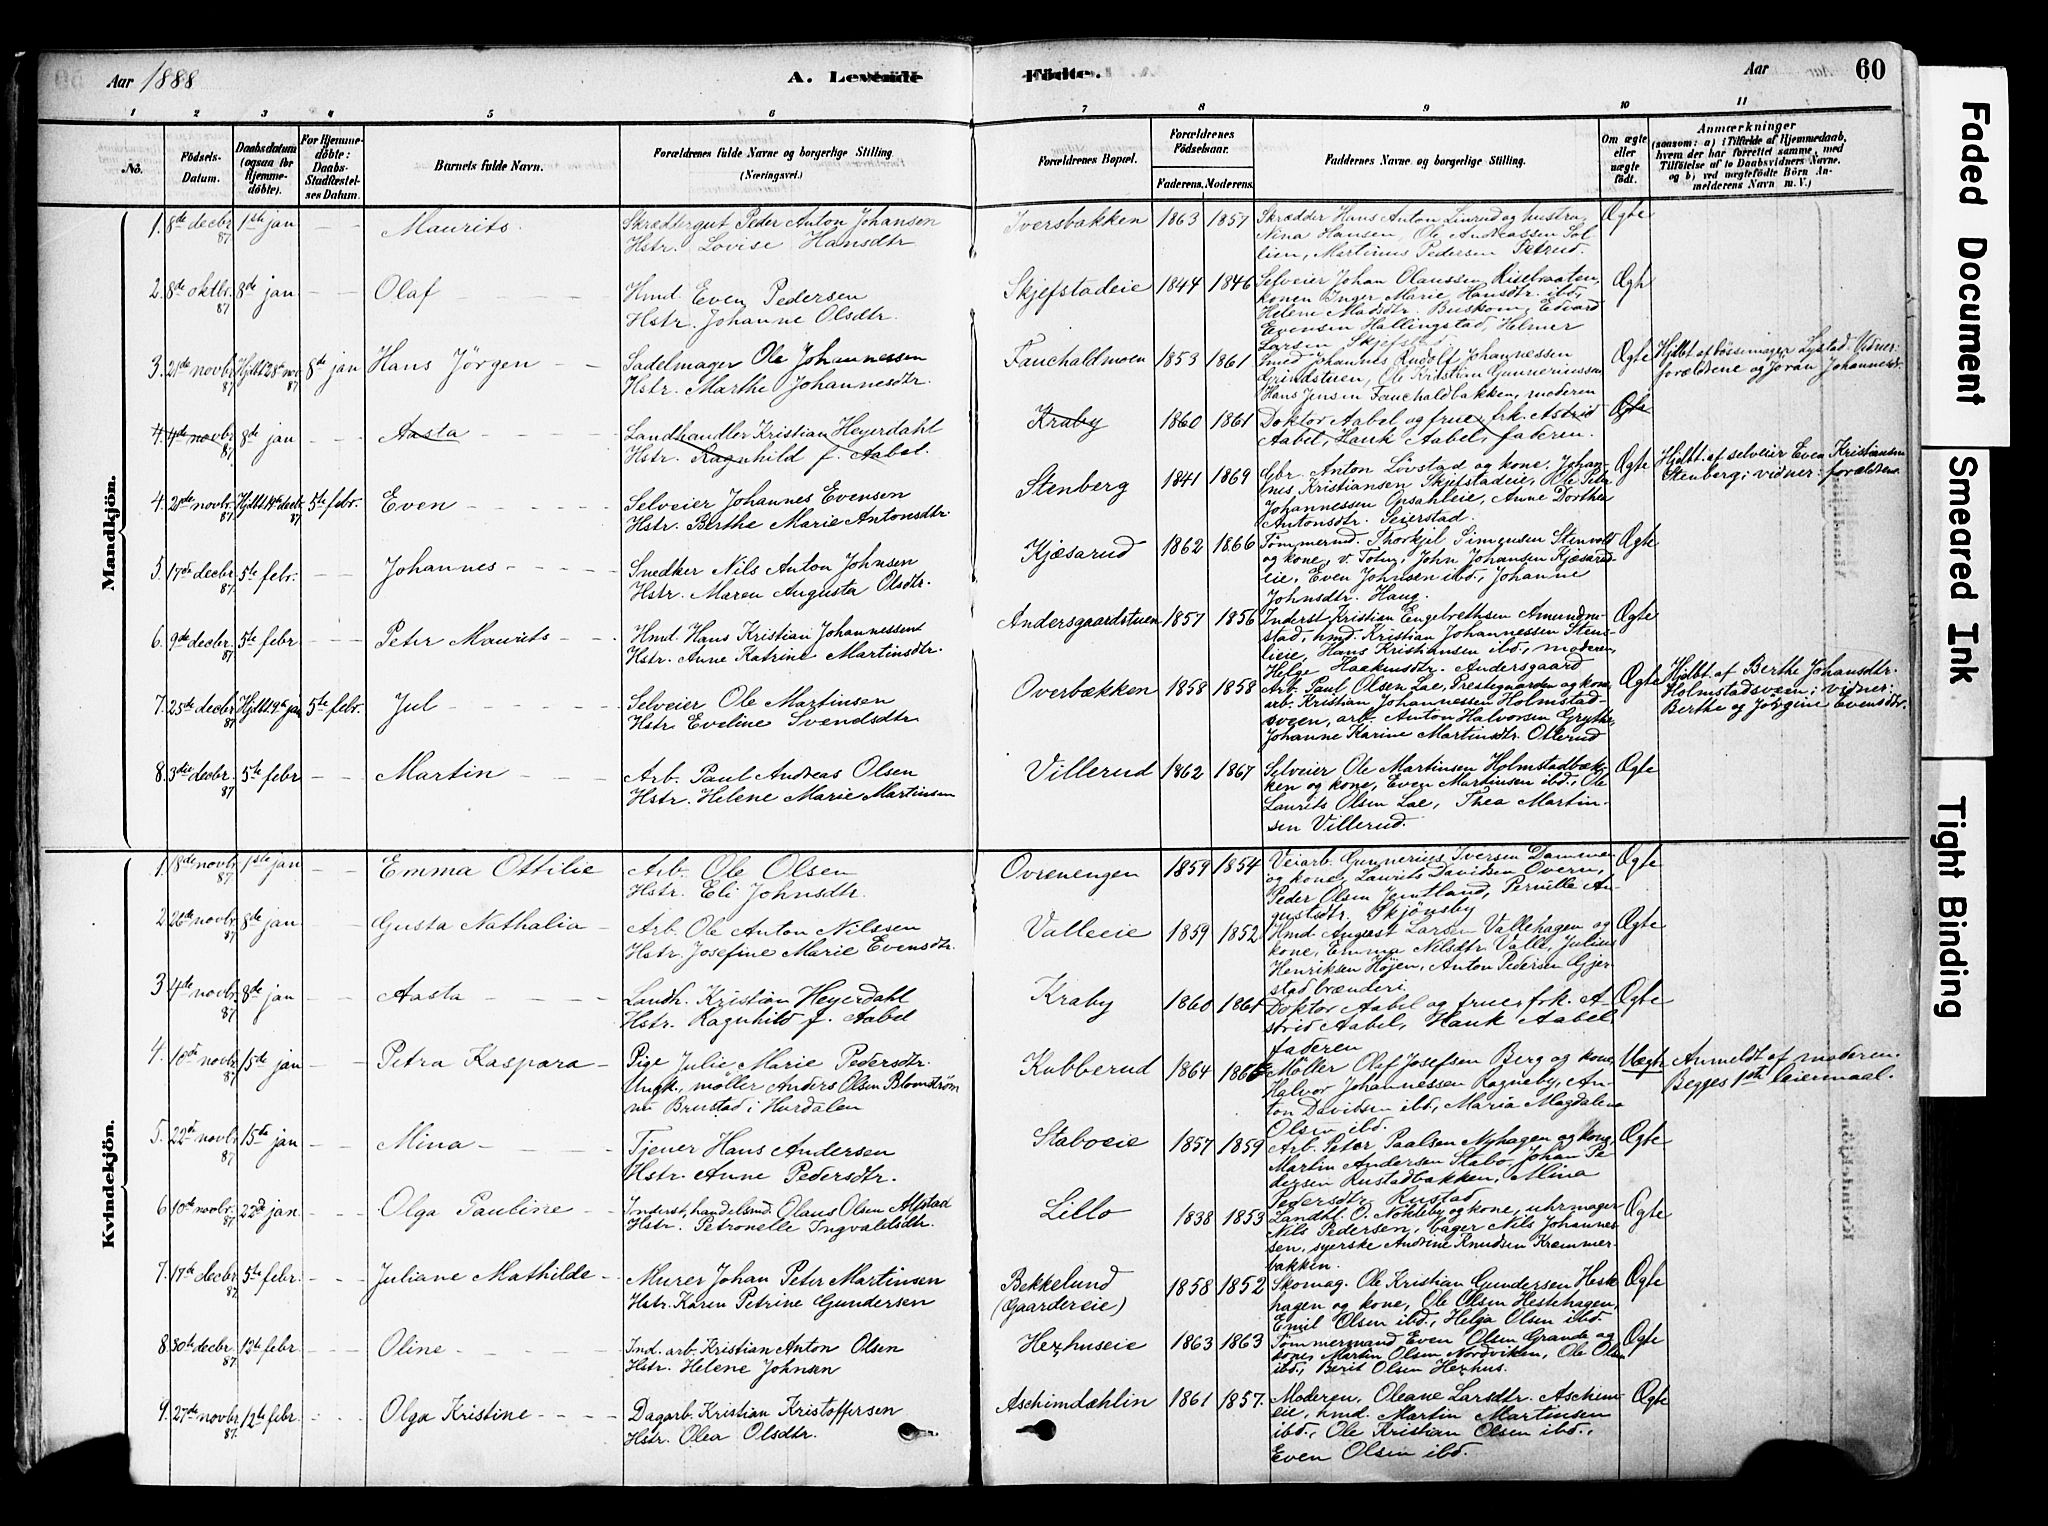 Aar 1888
A. Levende Födte.
Aar
60
1 2 3 4 5 6 7 8 9 10 11
No.
Födsels-Datum.
Daabsdatum (ogsaa for Hjemme-döbte).
For Hjemme-döbte: Daabs-Stadfæstel-ses Datum.
Barnets fulde Navn.
Forældrenes fulde Navne og borgerlige Stilling
(Næringsvei.)
Forældrenes Bopæl.
Forældrenes Födselsaar.
Faderens. Moderens.
Faddernes Navne og borgerlige Stilling.
Om ægte eller uægte födt.
Anmærkninger
(saasom: a) i Tilfælde af Hjemmedaab, hvem der har forrettet samme, med Tilföielse af to Daabsvidners Navne, og b) ved uægtefödte Börn An-melderens Navn m. V.)
Mandkjön.
1. 8de decbr 87 1ste jan Maurits.
Skræddergut Peder Anton Johansen
Hstr. Lovise Hansdtr
Iversbakken 1863 1857
Skrædder Hans Anton Linrud og hustru
Nina Hansen, Ole Andreassen Sol-
lien, Martinus Pedersen Petrud.
Ægte
2. 8de oktbr. 87 8de jan Olaf
Hmd. Even Pedersen
Hstr. Johanne Olsdtr.
Skjefstadeie 1844 1846
Selveier Johan Olaussen Risebraaten,
konen Inger Marie Hansdtr. ibd,
Helene Madsdtr. Buskom, Edvard
Evensen Hallingstad, Helmer
Larsen Skjefstad.
Ægte
3. 21de novbr 87 Hjdbt 28de nov 87 8de jan Hans Jörgen
Sadelmager Ole Johannessen
Hstr. Marthe Johannesdtr.
Fauchaldmoen 1853 1861
Smed Johannes Rudolf Johannessen
Grindstuen, Ole Kristian Gunneriussen
Hans Jensen Fauchaldbakken, moderen
Ægte
Hjdbt af bössemager Lystad. Vidner:
forældrene og Joran Johannesdtr.
4. 4de novbr 87 8de jan Aasta
Landhandler Kristian Heyerdahl
Hstr. Ragnhild f. Aabel.
Kraby 1860 1861
Doktor Aabel og frue, frk. Astrid
Aabel, Hauk Aabel, faderen.
Ægte
4. 20de novbr. 87 Hjdbt 14de decbr 87 5te febr. Even
Selveier Johannes Evensen
Hstr. Berthe Marie Antonsdtr.
Stenberg 1841 1869
Gbr. Anton Lövstad og kone, Johan-
nes Kristiansen Skjefstadeie, Ole Peter
Johannessen Opsahleie, Anne Dorthea
Antonsdtr. Seierstad.
Ægte
Hjdbt. af selveier Even Kristiansen
Stenberg; vidner: forældrene.
5. 17de decbr 87 5te febr. Johannes
Snedker Nils Anton Johnsen
Hstr. Maren Augusta Olsdtr.
Kjæsarud 1862 1866
Tömmermd. Thorkjel Simensen Stenvold
og kone, v. Toten, John Johansen Kjæsarud-
eie, Even Johnsen ibd., Johanne
Johnsdtr. Haug.
Ægte
6. 9de decbr. 87 5te febr Peter Maurits
Hmd. Hans Kristian Johannessen
Hstr. Anne Katrine Martinsdtr.
Andersgaardstuen 1857 1856
Inderst Kristian Engebrethsen Amundru-
stad, hmd. Kristian Johannessen Stens-
lieie, Hans Kristiansen ibd., moderen,
Helge Haakensdtr. Andersgaard
Ægte
7. 25de decbr 87 Hjdbt 9de jan 5te febr. Jul
Selveier Ole Martinsen
Hstr. Eveline Svendsdtr
Overbækken 1858 1858
Arb. Paul Olsen Lae, Prestegaarden og kone,
arb. Kristian Johannessen Holmstad-
sveen, arb. Anton Halvorsen Grythe,
Johanne Karine Martinsdtr. Ollerud
Ægte
Hjdbt. af Berthe Johansdtr.
Holmstadsveen; vidner:
Berthe og Jörgine Evensdtr.
8. 3die decbr. 87 5te febr Martin
Arb. Paul Andreas Olsen
Hstr. Helene Marie Martinsen
Villerud 1862 1867
Selveier Ole Martinsen Holmstadbæk-
ken og kone, Even Martinsen ibd., Ole
Laurits Olsen Lae, Thea Martin-
sen Villerud.
Ægte
Kvindekjön.
1. 18de novbr 87 1ste jan Emma Ottilie
Arb. Ole Olsen
Hstr. Eli Johnsdtr.
Ovrenengen 1859 1854
Veiarb. Gunnerius Iversen Dammen
og kone, Laurits Davidsen Overn,
Peder Olsen Jemtland, Pernille Au-
gustsdtr. Skjönsby
Ægte
2. 26de novbr. 87 8de jan Gusta Nathalia
Arb. Ole Anton Nilssen
Hstr. Josefine Marie Evensdtr.
Valleeie 1859 1852
Hmd. August Larsen Vallehagen og
kone, Emma Nilsdtr. Valle, Julius
Henriksen Højen, Anton Pedersen Gjer-
stadbrænderi
Ægte
3 4de novbr. 87 8de jan Aasta
Landh. Kristian Heyerdahl
Hstr. Ragnhild f. Aabel
Kraby 1860 1861
Doktor Aabel og frue, frk. A-
strid Aabel, Hauk Aabel,
faderen
Ægte
4. 10de novbr 87 15de jan Petra Kaspara
Pige Julie Marie Pedersdtr.
Ungk., møller Anders Olsen Blomstrøm
nu Brustad i Hurdalen
Kubberud 1864 1866
Møller Olaf Josefsen Berg og kone,
Halvor Johannessen Rogneby, An-
ton Davidsen ibd., Maria Magdalena
Olsen ibd.
Uægte
Anmeldt af moderen.
Begges 1ste leiermaal.
5. 22de novbr 87 15de jan Mina
Tjener Hans Andersen
Hstr. Anne Pedersdtr.
Staboeie 1857 1859
Arb. Peter Paalsen Nyhagen og kone,
Martin Andersen Stabo, Johan Pe-
dersen Rustadbakken, Mina
Pedersdtr. Rustad
Ægte
6. 10de novbr. 87 22de jan Olga Pauline
Inderst, handelsmd. Olaus Olsen Alfstad
Hstr. Petronelle Ingvaldsdtr.
Lillo 1838 1853
Landhl. O. Nökleby og kone, uhrmager
Nils Pedersen, bager Nils Johannes-
sen, syerske Andrine Knudsen Kræmmer-
bakken.
Ægte
7. 17de decbr 87 5te febr. Juliane Mathilde
Murer Johan Peter Martinsen
Hstr. Karen Petrine Gundersen
Bekkelund
(Gaardereie) 1858 1852
Skomag. Ole Kristian Gundersen Heste-
hagen og kone, Ole Olsen Hestehagen,
Emil Olsen ibd., Helga Olsen ibd.
Ægte
8. 30te decbr 87 12te febr Oline
Ind. arb. Kristian Anton Olsen
Hstr. Helene Johnsen
Hexhuseie 1863 1863
Tömmermand Even Olsen Grande og
kone, Martin Olsen Nordviken, Ole Olsen
ibd., Berit Olsen Hexhus.
Ægte
9. 27de novbr 87. 12te febr. Olga Kristine
Dagarb. Kristian Kristoffersen
Hstr. Olea Olsdtr.
Aschimdæhlin 1861 1857.
Moderen, Oleane Larsdtr. Aschim-
eie, hmd. Martin Martinsen
ibd., Ole Kristian Olsen ibd.,
Even Olsen ibd.
Ægte
Faded Document
Smeared Ink
Tight Binding